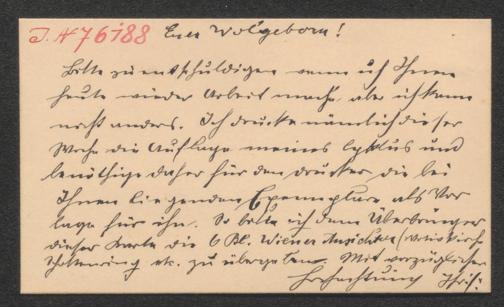 I.N 76188 Euer Wolgeborn!
Bitte zu entschuldigen wenn ich Ihnen
heute wieder Arbeit mache, aber ich kann
nicht anders. Ich drucke nämlich dieser
Woche die Auflage meines Cyklus und
benöthige daher für den Drucker die bei
Ihnen liegenden Exemplare als Vor
lage für ihn. So bitte ich dem Überbringer
dieser Karte die 6 Bl. Wiener Ansichten (Votivkirche
Schottenring etc. zu übergeben. Mit vorzüglicher
Hochachtung